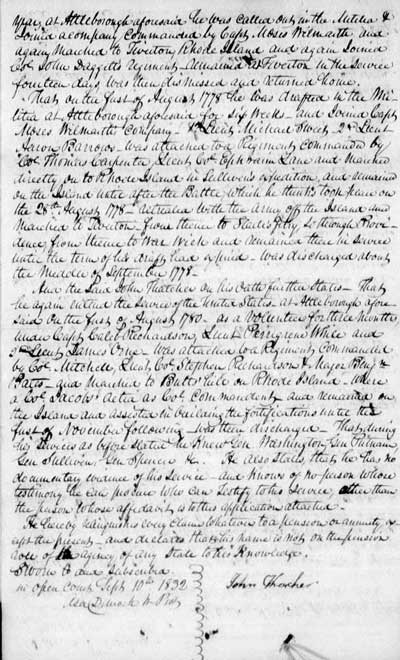 year, at Attleborough aforesaid he was called out in the Militia &
Joined a company Commanded by Capt Moses Wilmarth and
again marched to Tiverton, Rhode Island and again Joined
Col. John Daggetts Regiment & remained at Tiverton in the service
fourteen days was then dismissed and returned home.
That on the first of August 1778 he was drafted in the Mi-
litia at Attleborough aforesaid for six weeks - and Joined Capt
Moses Wilmarth Company - 1st Lieut Michael Sweet, 2d Lieut
Aaron Barrows - was attached to a Regiment commanded by
Col. Thomas Carpenter, Lieut Col. Ephraim Lane and Marched
directly on to Rhode Island in Sullivans expedition, and remained
on the Island until after the Battle which he thinks took place on
the 28th August 1778 - retreated with the army off the Island and
Marched to Tiverton from thence to Slades ferry & through Provi-
dence from thence to War Wick and remained there in service
until the term of his draft had expired - was discharged about
the Middle of September 1778 -
And the said John Thatcher on his oath further States - That
he again entered the service of the United States at Attleborough afore-
said on the first of August 1780 - as a volunteer for three months
under Capt Caleb Richardson, Lieut Peregrine White and
2d Lieut James Orne - was attached to a Regiment Commanded
by Col. Mitchell, Lieut Col. Stephen Richardson & Major
and Marched to Butts Hill on Rhode Island - where
a Col. Jacobs acted as Col. Commandant and remained on
the Island and assisted in building the fortifications until the
first of November following - was then discharged - That during
his services as before stated he knew Gen. Washington Gen. Putnam
Gen Sullivan, Gen Spencer &c. He also states, that he has no
documentary evidence of his service - and knows of no person whose
testimony he can procure who can testify to his service, other than
the person whose affidavit is to this application attached -
He hereby relinquishes every claim whatever to a pension or annuity ex
cept the present - and declares that his name is not on the pension
role of the agency of any State to his Knowledge.
Sworn to and Subscribed
in open Court Sept 10th 1832
John Thacher